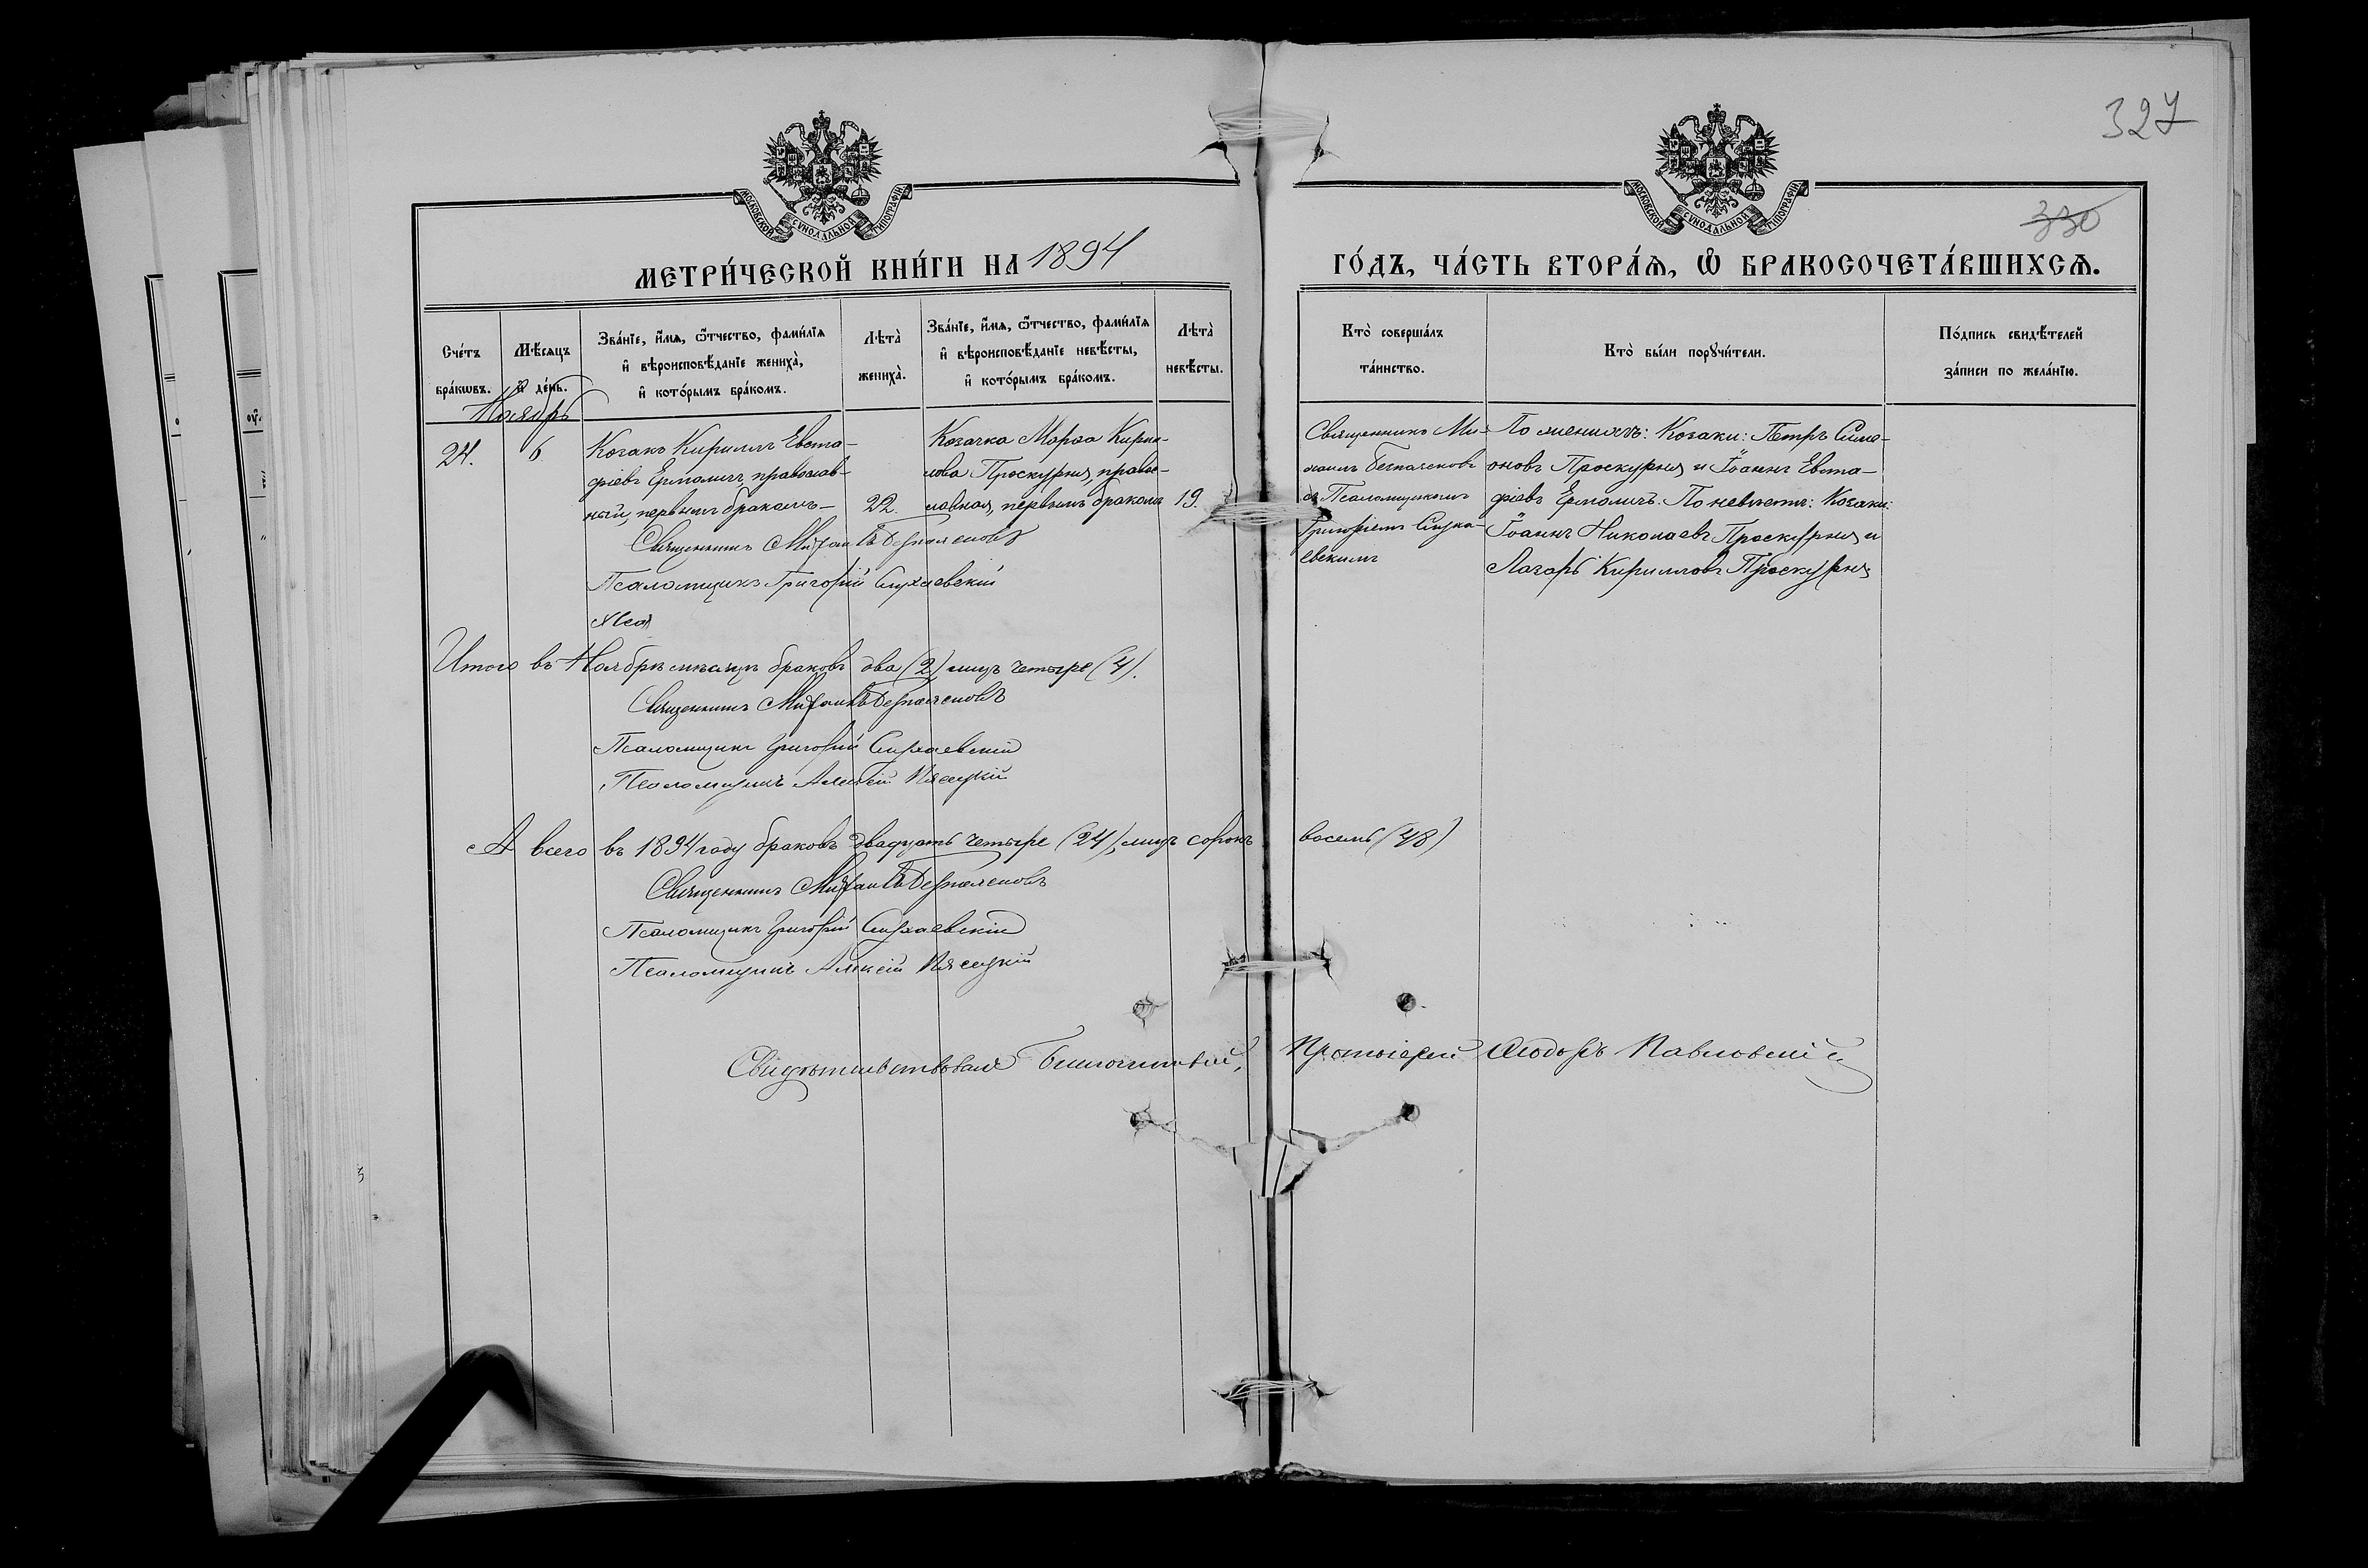 327
330
МОСКОВСКОЙ СѴНОДАЛЬНОЙ ТИПОГРАФІИ
МОСКОВСКОЙ СѴНОДАЛЬНОЙ ТИПОГРАФІИ
МЕТРИ́ЧЕСКОЙ КНИ́ГИ НА 1894
ГО́ДЪ, ЧА́СТЬ ВТОРА́Ѧ, Ѽ БРАКОСОЧЕТА́ВШИХСѦ.
Сче́тъ
бра́кѡвъ.
Мѣ́сѧцъ
и҆ де́нь.
Зва́нїе, и҆́мѧ, ѻ҆́тчество, фами́лїѧ
и҆ вѣроисповѣ́данїе жениха̀,
и҆ кото́рымъ бра́комъ.
Лѣта̀
жениха̀.
Зва́нїе, и҆́мѧ, ѻ҆́тчество, фами́лїѧ
и҆ вѣроисповѣ́данїе невѣ́сты,
и҆ кото́рымъ бра́комъ.
Лѣта̀
невѣ́сты.
Кто̀ соверша́лъ
та́инство.
Кто̀ бы́ли порꙋчи́тели.
По́дпись свидѣ́телей
за́писи по жела́нїю.
Ноябрь
24.
6.
Козакъ Кириллъ Евста-
фіевъ Ермоличъ, православ-
ный, первымъ бракомъ
22.
Козачка Марѳа Кирил-
лова Проскурня, правос-
лавная, первымъ бракомъ
19.
Священникъ Ми-
хаилъ
съ Псаломщикомъ
Григоріемъ
евскимъ
По женихѣ: Козаки: Петръ Симе-
оновъ Проскурня и Іоаннъ Евста-
фіевъ Ермоличъ. По невѣстѣ: Козаки:
Іоаннъ Николаевъ Проскурня и
Лазарь Кирилловъ Проскурня
Священникъ Михаилъ
Псаломщикъ Григорій
Итого въ Ноябрѣ мѣсяцѣ браковъ два (2), лицъ четыре (4).
Священникъ Михаилъ
Псаломщикъ Григорій
Псаломщикъ Алексѣй Пясецкій
А всего въ 1894 году браковъ двадцать четыре (24), лицъ сорокъ восемь (48)
Священникъ Михаилъ
Псаломщикъ Григорій
Псаломщикъ Алексѣй Пясецкій
Свидѣтельствовалъ Благочинный, Протоіерей Ѳеодоръ Павловскій